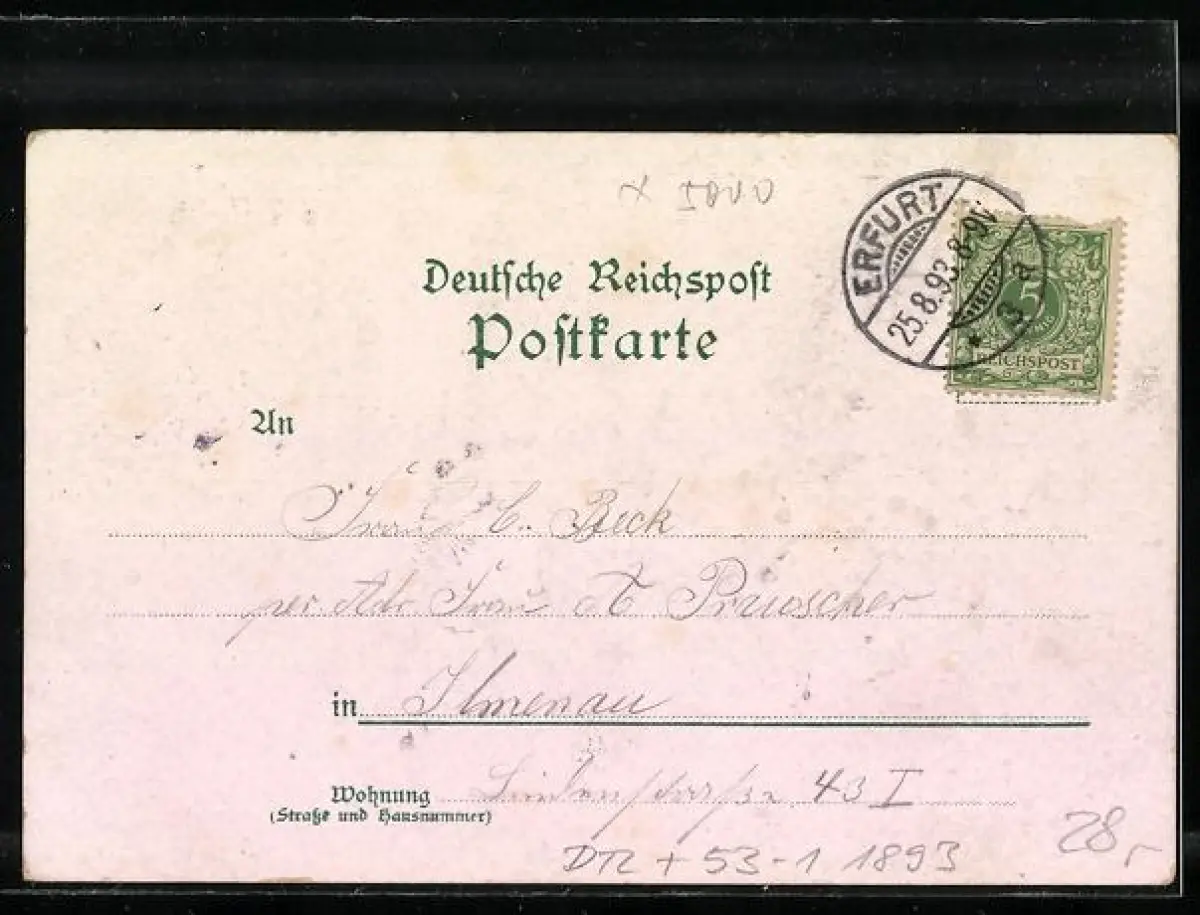 x 5000
Deutsche Reichspost
Postkarte
ERFURT
25.8.93.8-9N
* 3 a
5
REICHSPOST
An
Frau C. Beck
per Adr Frau A
in Ilmenau
Wohnung Lindenstraße 43 I
(Straße und Hausnummer)
+ 53-1 1893
28,-